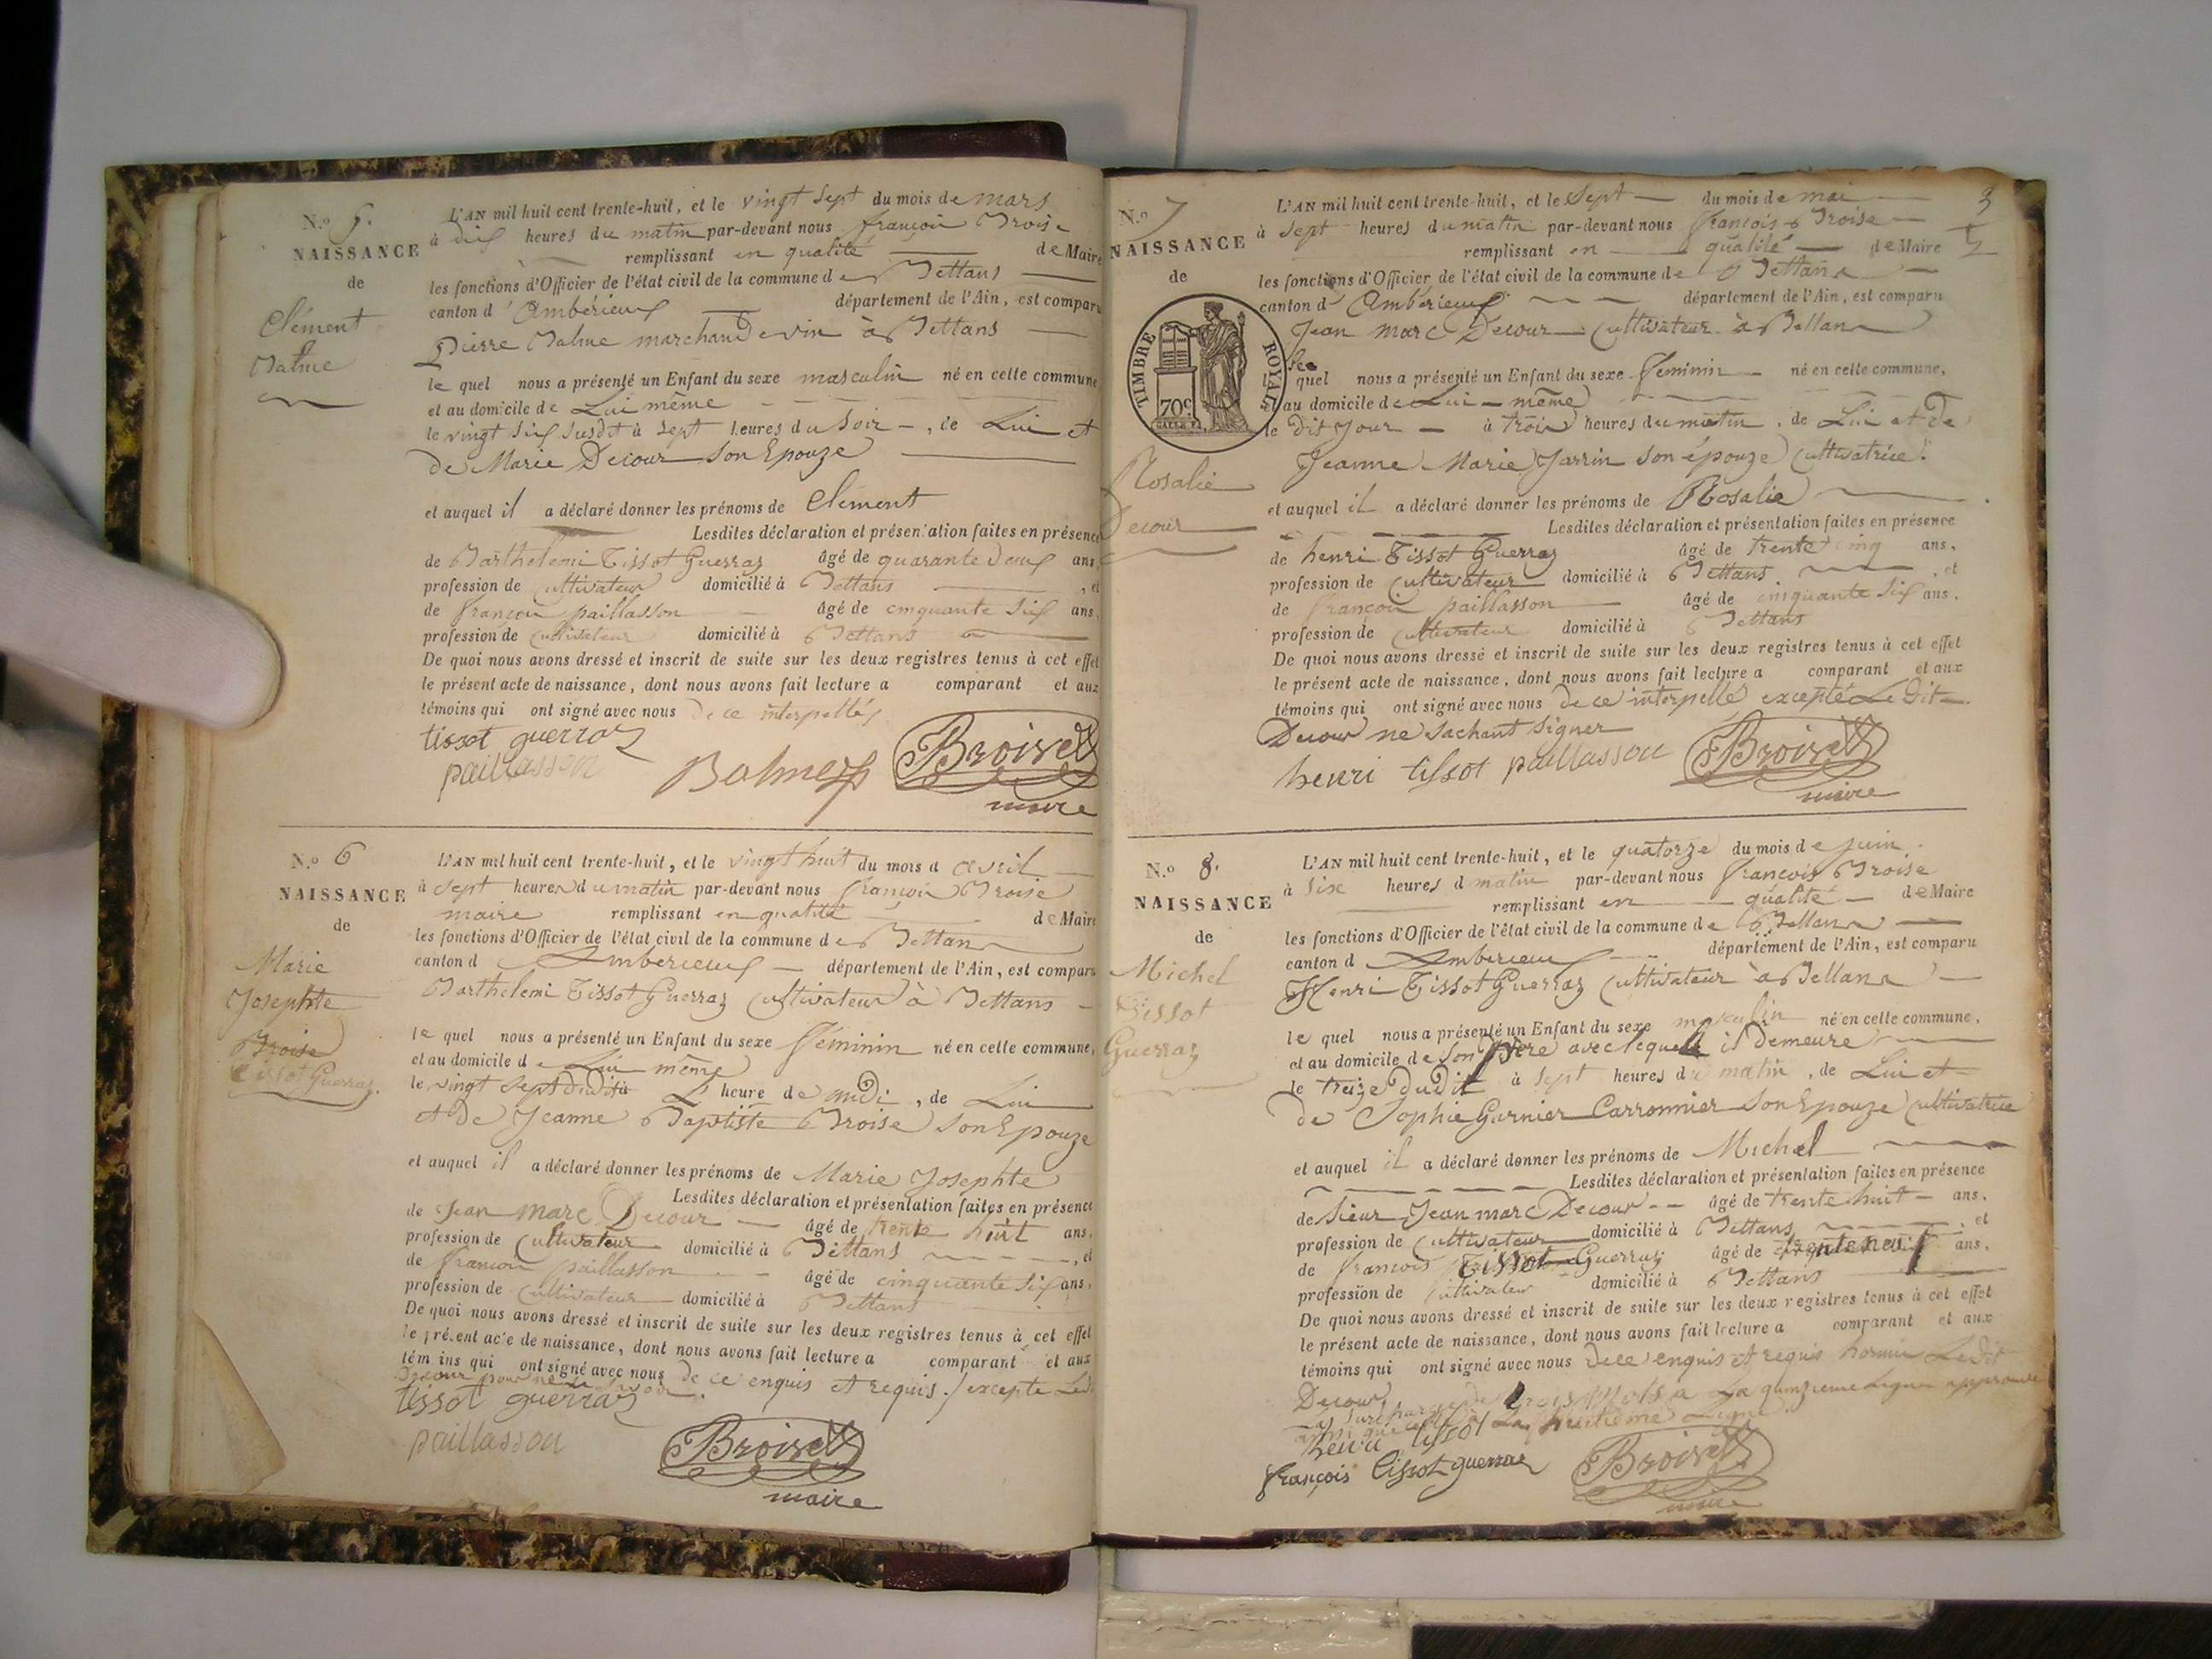 N.º 5.
NAISSANCE
de
Clément
Balme
L'AN mil huit cent trente-huit, et le vingt sept du mois de mars
à dix heures du matin par-devant nous françois Broise
remplissant en qualité de Maire
les fonctions d'Officier de l'état civil de la commune de Bettans
canton d'Ambérieux département de l'Ain, est comparu
Pierre Balme marchand de vin à Bettans
le quel nous a présenté un Enfant du sexe masculin né en cette commune
et au domicile de Lui même
le vingt six susdit à sept heures du Soir, de Lui et
de Marie Decour son Epouze
et auquel il a déclaré donner les prénoms de Clément
Lesdites déclaration et présentation faites en présence
de Barthelemi Tissot Guerraz âgé de quarante deux ans
profession de cultivateur domicilié à Bettans, et
de françois paillasson âgé de cinquante six ans,
profession de cultivateur domicilié à Bettans
De quoi nous avons dressé et inscrit de suite sur les deux registres tenus à cet effet
le présent acte de naissance, dont nous avons fait lecture a comparant et aux
témoins qui ont signé avec nous de ce interpellés
tissot guerraz
paillasson Balme Broise
maire
N.º 6
NAISSANCE
de
Marie
Josephte
Broise
Tissot Guerraz.
L'AN mil huit cent trente-huit, et le vingt huit du mois d avril
à sept heures du matin par-devant nous françois Broise
maire remplissant en qualité de Maire
les fonctions d'Officier de l'état civil de la commune de Bettans
canton d Ambérieux département de l'Ain, est comparu
Barthelemi Tissot Guerraz cultivateur à Bettans
le quel nous a présenté un Enfant du sexe féminin né en cette commune,
et au domicile de Lui même
le vingt sept dudit à L'heure de midi, de Lui
et de Jeanne Baptiste Broise son Epouze
et auquel il a déclaré donner les prénoms de Marie Josephte
Lesdites déclaration et présentation faites en présence
de Jean Marc Decour âgé de trente huit ans,
profession de cultivateur domicilié à Bettans, et
de françois paillasson âgé de cinquante six ans,
profession de cultivateur domicilié à Bettans
De quoi nous avons dressé et inscrit de suite sur les deux registres tenus à cet effet
le présent acte de naissance, dont nous avons fait lecture a comparant et aux
témoins qui ont signé avec nous de ce enquis et requis excepté Led
Decour pour ne le
tissot guerraz
paillasson Broise
maire
3
N.º 7
NAISSANCE
de
TIMBRE ROYAL
70c
Rosalie
Decour
L'AN mil huit cent trente-huit, et le Sept du mois de mai
à sept heures du matin par-devant nous françois Broise
remplissant en qualité de Maire
les fonctions d'Officier de l'état civil de la commune de Bettans
canton d'Ambérieux département de l'Ain, est comparu
Jean Marc Decour cultivateur à Bettans
le quel nous a présenté un Enfant du sexe féminin né en cette commune,
et au domicile de Lui même
le dit Jour à trois heures du matin, de Lui et de
Jeanne Marie Jarrin son épouze cultivatrice.
et auquel il a déclaré donner les prénoms de Rosalie
Lesdites déclaration et présentation faites en présence
de henri Tissot Guerraz âgé de trente cinq ans,
profession de cultivateur domicilié à Bettans, et
de françois paillasson âgé de cinquante six ans,
profession de cultivateur domicilié à Bettans
De quoi nous avons dressé et inscrit de suite sur les deux registres tenus à cet effet
le présent acte de naissance, dont nous avons fait lecture a comparant et aux
témoins qui ont signé avec nous de ce interpellé excepté Le dit
Decour ne sachant signer
henri tissot paillasson Broise
maire
N.º 8.
NAISSANCE
de
Michel
Tissot
Guerraz
L'AN mil huit cent trente-huit, et le quatorze du mois de juin
à Six heures d matin par-devant nous françois Broise
remplissant en qualité de Maire
les fonctions d'Officier de l'état civil de la commune de Bettans
canton d Ambérieux département de l'Ain, est comparu
Henri Tissot Guerraz cultivateur à Bettans
le quel nous a présenté un Enfant du sexe masculin né en cette commune,
et au domicile de son frère avec lequel il demeure
le treize dudit à sept heures du matin, de Lui et
de Sophie Garnier Carronnier son Epouze cultivatrice
et auquel il a déclaré donner les prénoms de Michel
Lesdites déclaration et présentation faites en présence
de Sieur Jean marc Decour âgé de trente huit ans,
profession de cultivateur domicilié à Bettans, et
de françois Tissot Guerraz âgé de trente neuf ans,
profession de cultivateur domicilié à Bettans
De quoi nous avons dressé et inscrit de suite sur les deux registres tenus à cet effet
le présent acte de naissance, dont nous avons fait lecture a comparant et aux
témoins qui ont signé avec nous de ce enquis et requis hormis Ledit
Decour
La surcharge de trois mots a La quinzieme Ligne approuvé
ainsi que celle à La huitième Ligne
henri tissot
françois tissot guerraz Broise
maire